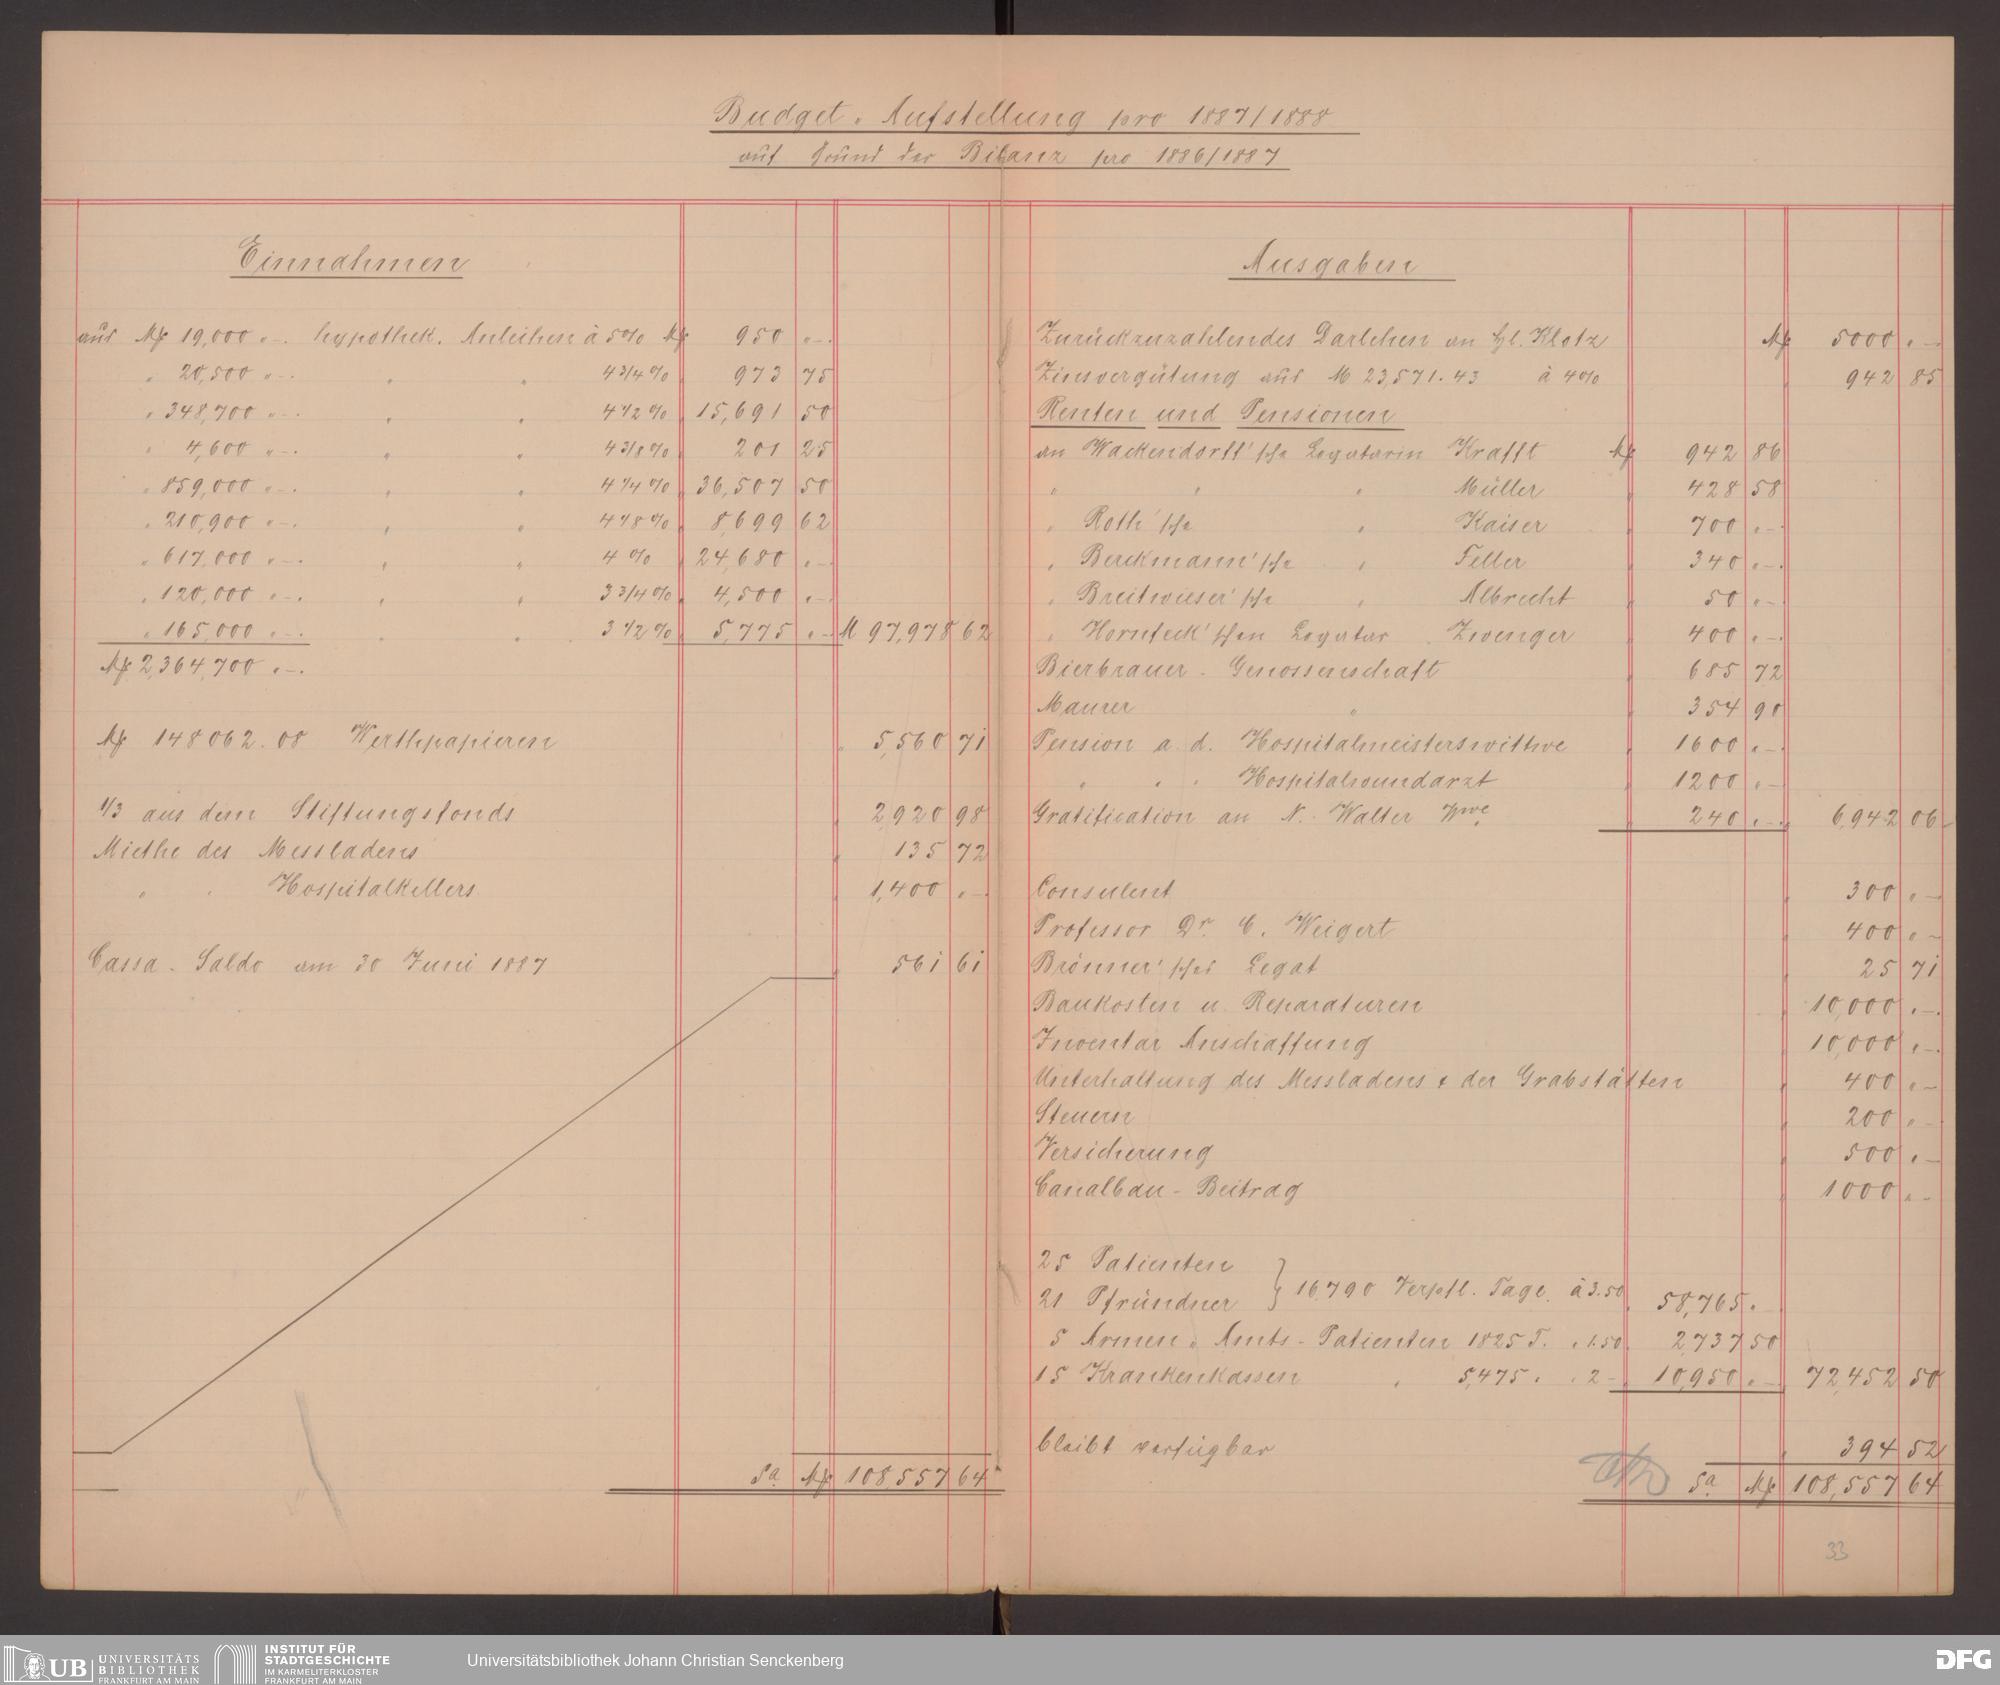 Budget-Aufstellung pro 1887/1888
auf Grund der Bilanz pro 1886/1887
Einnahmen
aus M 19,000 „ –. hypothek. Anleihen à 5% M 950 „ –.
„ 20,500 „ –. „ „ 4 3/4 % „ 973 75
„ 348,700 „ –. „ „ 4 1/2 % „ 15,691 50
„ 4,600 „ –. „ „ 4 3/8 % „ 201 25
„ 859,000 „ –. „ „ 4 1/4 % „ 36,507 50
„ 210,900 „ –. „ „ 4 1/8 % „ 8,699 62
„ 617,000 „ –. „ „ 4 % „ 24,680 „ –.
„ 120,000 „ –. „ „ 3 3/4 % „ 4,500 „ –.
„ 165,000 „ –. „ „ 3 1/2 % „ 5,775 „ – M 97,978 62
M 2,364,700 „ –.
M 148062.08 Werthpapieren „ 5,560 71
1/3 aus dem Stiftungsfonds „ 2920 98
Miethe des Messladens „ 135 72
„ „ Hospitalkellers „ 1,400 „ –.
Cassa-Saldo am 30 Juni 1887 „ 561 61
Sa. M 108,557 64
Ausgaben
Zurückzuzahlendes Darlehen an Klotz M 5000 „ –
Zinsvergütung aus M 23,571.43 à 4% „ 942 85
Renten und Pensionen
an Wackendorff'sche Legatarin Krafft M 942 86
„ „ „ Müller „ 428 58
„ Roth'sche „ Kaiser „ 700 „ –.
„ Berckmann'sche „ Feller „ 340 „ –.
„ Breitwieser'sche „ Albrecht „ 50 „ –.
„ Hornfeck'schen Legatar Zwenger „ 400 „ –.
Bierbrauer-Genossenschaft „ 685 72
Maurer „ „ 354 90
Pension a. d. Hospitalmeisterswittwe „ 1600 „ –.
„ „ „ Hospitalwundarzt „ 1200 „ –
Gratification an N. Walter Wwe „ 240 „ –. „ 6,942 06
Consulent „ 300 „ –
Professor Dr. C. Weigert „ 400 „ –
Brönner'sches Legat „ 25 71
Baukosten u. Reparaturen „ 10,000 „ –.
Inventar Anschaffung „ 10,000 „ –.
Unterhaltung des Messladens & der Grabstätten „ 400 „ –
Steuern „ 200 „ –
Versicherung „ 500 „ –
Canalbau-Beitrag „ 1000 „ –
25 Patienten
21 Pfründner } 16,790 Verpfl. Tage à 3.50 „ 58,765 „ –
5 Armen-Amts-Patienten 1825 T. „ 1.50 „ 2,737 50
15 Krankenkassen „ 5,475 „ „ 2 – „ 10,950 „ – „ 72,452 50
bleibt verfügbar „ 394 52
Sa. M 108,557 64
33
UB UNIVERSITÄTS
BIBLIOTHEK
FRANKFURT AM MAIN
INSTITUT FÜR
STADTGESCHICHTE
IM KARMELITERKLOSTER
FRANKFURT AM MAIN
Universitätsbibliothek Johann Christian Senckenberg
DFG